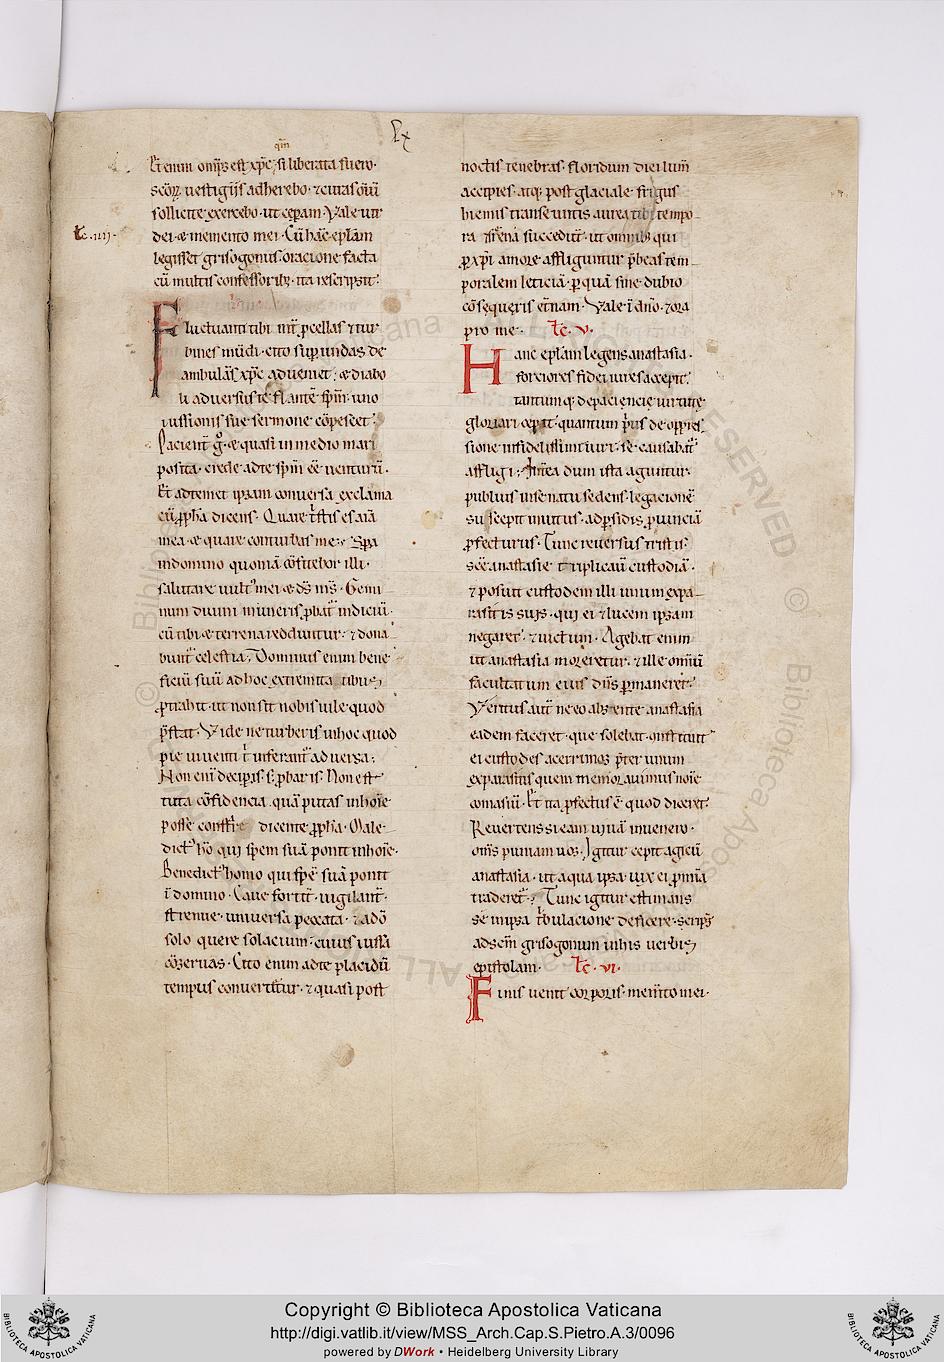 qm̄
Lx
Et enim om̄ps est xp̄c; si liberata fuero·
sc̄oꝝ uestigiis adherebo· ⁊ curas om̄iū
sollicite exercebo· ut cepam· Vale uir
dei ⁊ memento mei· Cū hanc ep̄lam
lc̄·iiij·
legisset grisogonus· oracione facta
cū multis confessorib; ita rescripsit·
Fluctuanti tibi int̄ pcellas ⁊ tur
bines mūdi· cito sup undas de
ambulās xp̄c adueniet; ⁊ diabo
li aduersus te flantē sp̄m· uno
iussionis sue sermone cōpescet·
Pacient̄ gͦ· ⁊ quasi in medio mari
posita· crede ad te xp̄m eē uenturū·
Et ad temet ipsam conuersa exclama
cū ꝓpha dicens· Quare tͥstis es aīa
mea· ⁊ quare conturbas me· Spa
in domino quoniā cōfitebor illi·
salutare uult' mei ⁊ ds̄ ms̄· Gemi
num diuini muneris ꝓbat̄ indiciū·
cū tibi ⁊ terrena redduntur· ⁊ dona
bunt̄ celestia; Dominus enim bene
ficiū suū ad hoc extremita tibus
ꝓtrahit· ut non sit nobis uile quod
p̄stat· Vide ne turberis in hoc quod
pie uiuenti t̄ inferant̄ aduersa;
Non eni decipis s; ꝓbaris· Non est
tuta cōfidencia quā putas in hoīe
posse conferre dicente ꝓpha· Male
dict' hō qui spem suā ponit in hoīe·
Benedict' homo qui spē suā ponit
ī domino· Caue fortit̄· uigilant̄·
strenue· uniuersa peccata· ⁊ a dō
solo quere solacium· cuius iussa
cōseruas· Cito enim ad te placidū
tempus conuertitur· ⁊ quasi post
noctis tenebras· floridum diei lum̄
accipies· atq; post glaciale frigus
hiemis transeuntis aurea tibi tempo
ra serena succedūt· ut omnib; qui
ꝓ xpi amore affliguntur p̄beas tem
poralem leticiā· ꝑ quā sine dubio
cōsequeris et̄nam· Vale ī dn̄o· ⁊ ora
pro me· lc̄· v·
Hanc ep̄lam legens anastasia·
forciores fidei uires accepit;
tantumq; de paciencie uirtute
gloriari cepit· quantum pͥus de oppres
sione infidelissimi uiri· se causabat̄
affligi; Int̄ea dum ista aguntur·
publius in senatu sedens· legacionē
suscepit inuitus· ad ꝑsidis ꝓuinciā
ꝓfecturus· Tunc reuersus tristis·
sc̄e anastasie triplicauit custodiā·
⁊ posuit custodem illi unum ex pa
rasitis suis· qui ei ⁊ lucem ipsam
negaret· ⁊ uictum· Agebat enim
ut anastasia moreretur· ⁊ ille omniū
facultatum eius dn̄s ꝑmaneret·
Veritus aut̄ ne eo absente anastasia
eadem faceret· que solebat· instituit
ei custodes acerrimos p̄ter unum
ex parasitis quem memorauimus noīe
comasiū· Et ita ꝓfectus ē quod diceret·
Reuertens si eam uiuā inuenero·
om̄s puniam uos· Igitur cepit agi cū
anastasia· ut aqua ipsa uix ei ꝑ minā
traderet̄; Tunc igitur estimans
se in ipsa tͥbulacione deficere· scrips'
ad sc̄m grisogonum in his uerbis
epistolam· lc̄· vi·
Finis uenit corporis· memto mei·
Copyright © Biblioteca Apostolica Vaticana
http://digi.vatlib.it/view/MSS_Arch.Cap.S.Pietro.A.3/0096
powered by DWork • Heidelberg University Library
BIBLIOTECA APOSTOLICA VATICANA
BIBLIOTECA APOSTOLICA VATICANA